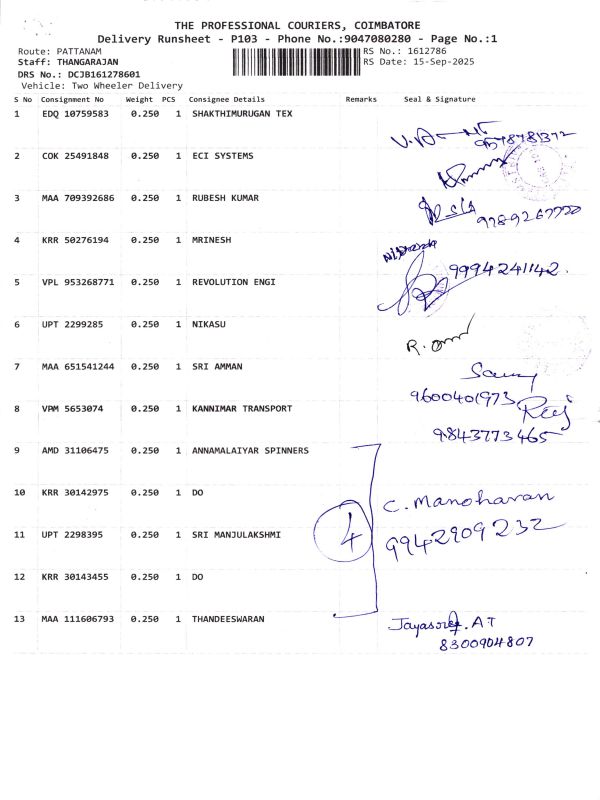 THE PROFESSIONAL COURIERS, COIMBATORE
Delivery Runsheet - P103 - Phone No.:9047080280 - Page No.:1
Route: PATTANAM RS No.: 1612786
Staff: THANGARAJAN RS Date: 15-Sep-2025
DRS No.: DCJB161278601
Vehicle: Two Wheeler Delivery
S No Consignment No Weight PCS Consignee Details Remarks Seal & Signature
1 EDQ 10759583 0.250 1 SHAKTHIMURUGAN TEX
2 COK 25491848 0.250 1 ECI SYSTEMS
3 MAA 709392686 0.250 1 RUBESH KUMAR
9789267720
4 KRR 50276194 0.250 1 MRINESH
9994241142.
5 VPL 953268771 0.250 1 REVOLUTION ENGI
6 UPT 2299285 0.250 1 NIKASU
7 MAA 651541244 0.250 1 SRI AMMAN
9600401973
8 VPM 5653074 0.250 1 KANNIMAR TRANSPORT
9843773465
9 AMD 31106475 0.250 1 ANNAMALAIYAR SPINNERS
10 KRR 30142975 0.250 1 DO
C. Manoharan
11 UPT 2298395 0.250 1 SRI MANJULAKSHMI
4 9942909232
12 KRR 30143455 0.250 1 DO
13 MAA 111606793 0.250 1 THANDEESWARAN
8300904807